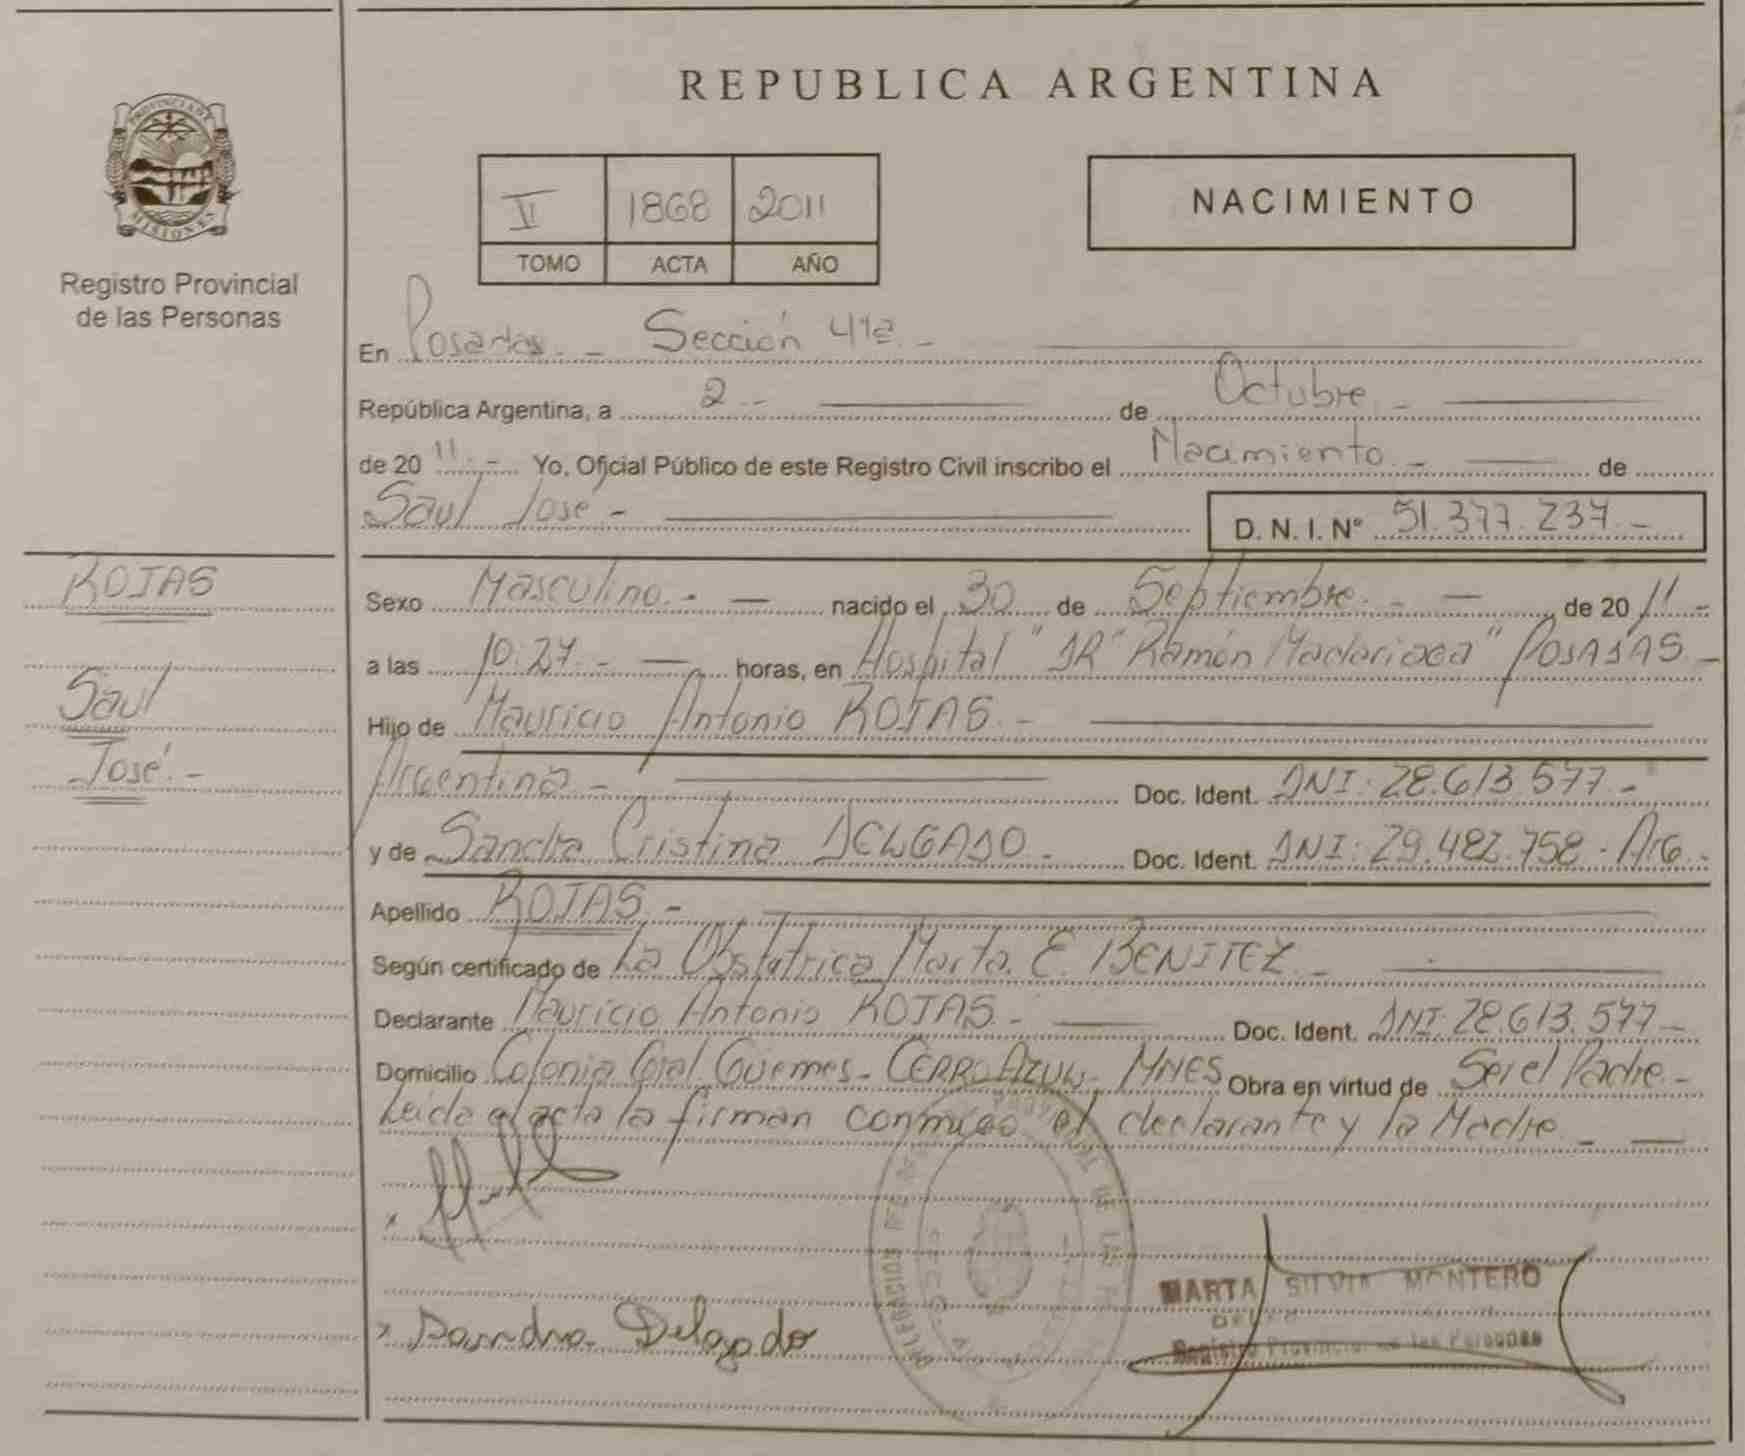 PROVINCIA DE
MISIONES
Registro Provincial
de las Personas
REPUBLICA ARGENTINA
II 1868 2011
TOMO ACTA AÑO
NACIMIENTO
En Posadas.- Sección 4ta.-
República Argentina, a 2.- de Octubre.-
de 20 11.- Yo, Oficial Público de este Registro Civil inscribo el Nacimiento.- de
Saul José.- D. N. I. N° 51.377.237.-
ROJAS
Saul
José.-
Sexo Masculino.- nacido el 30 de Septiembre.- de 20 11.-
a las 10:27.- horas, en Hospital "DR" Ramón Madariaga" POSADAS.-
Hijo de Mauricio Antonio ROJAS.-
Argentina.- Doc. Ident. DNI: 28.613.577.-
y de Sandra Cristina DELGADO.- Doc. Ident. DNI: 29.482.758.- Arg.-
Apellido ROJAS.-
Según certificado de La Obstetrica Marta. E. BENITEZ.-
Declarante Mauricio Antonio ROJAS.- Doc. Ident. DNI: 28.613.577.-
Domicilio Colonia Gral. Güemes.- CERRO AZUL.- MNES Obra en virtud de Ser el Padre.-
Leida el acta la firman conmigo el declarante y la Madre.-
Sandra Delgado
MARTA SILVIA MONTERO
Registro Provincial de las Personas